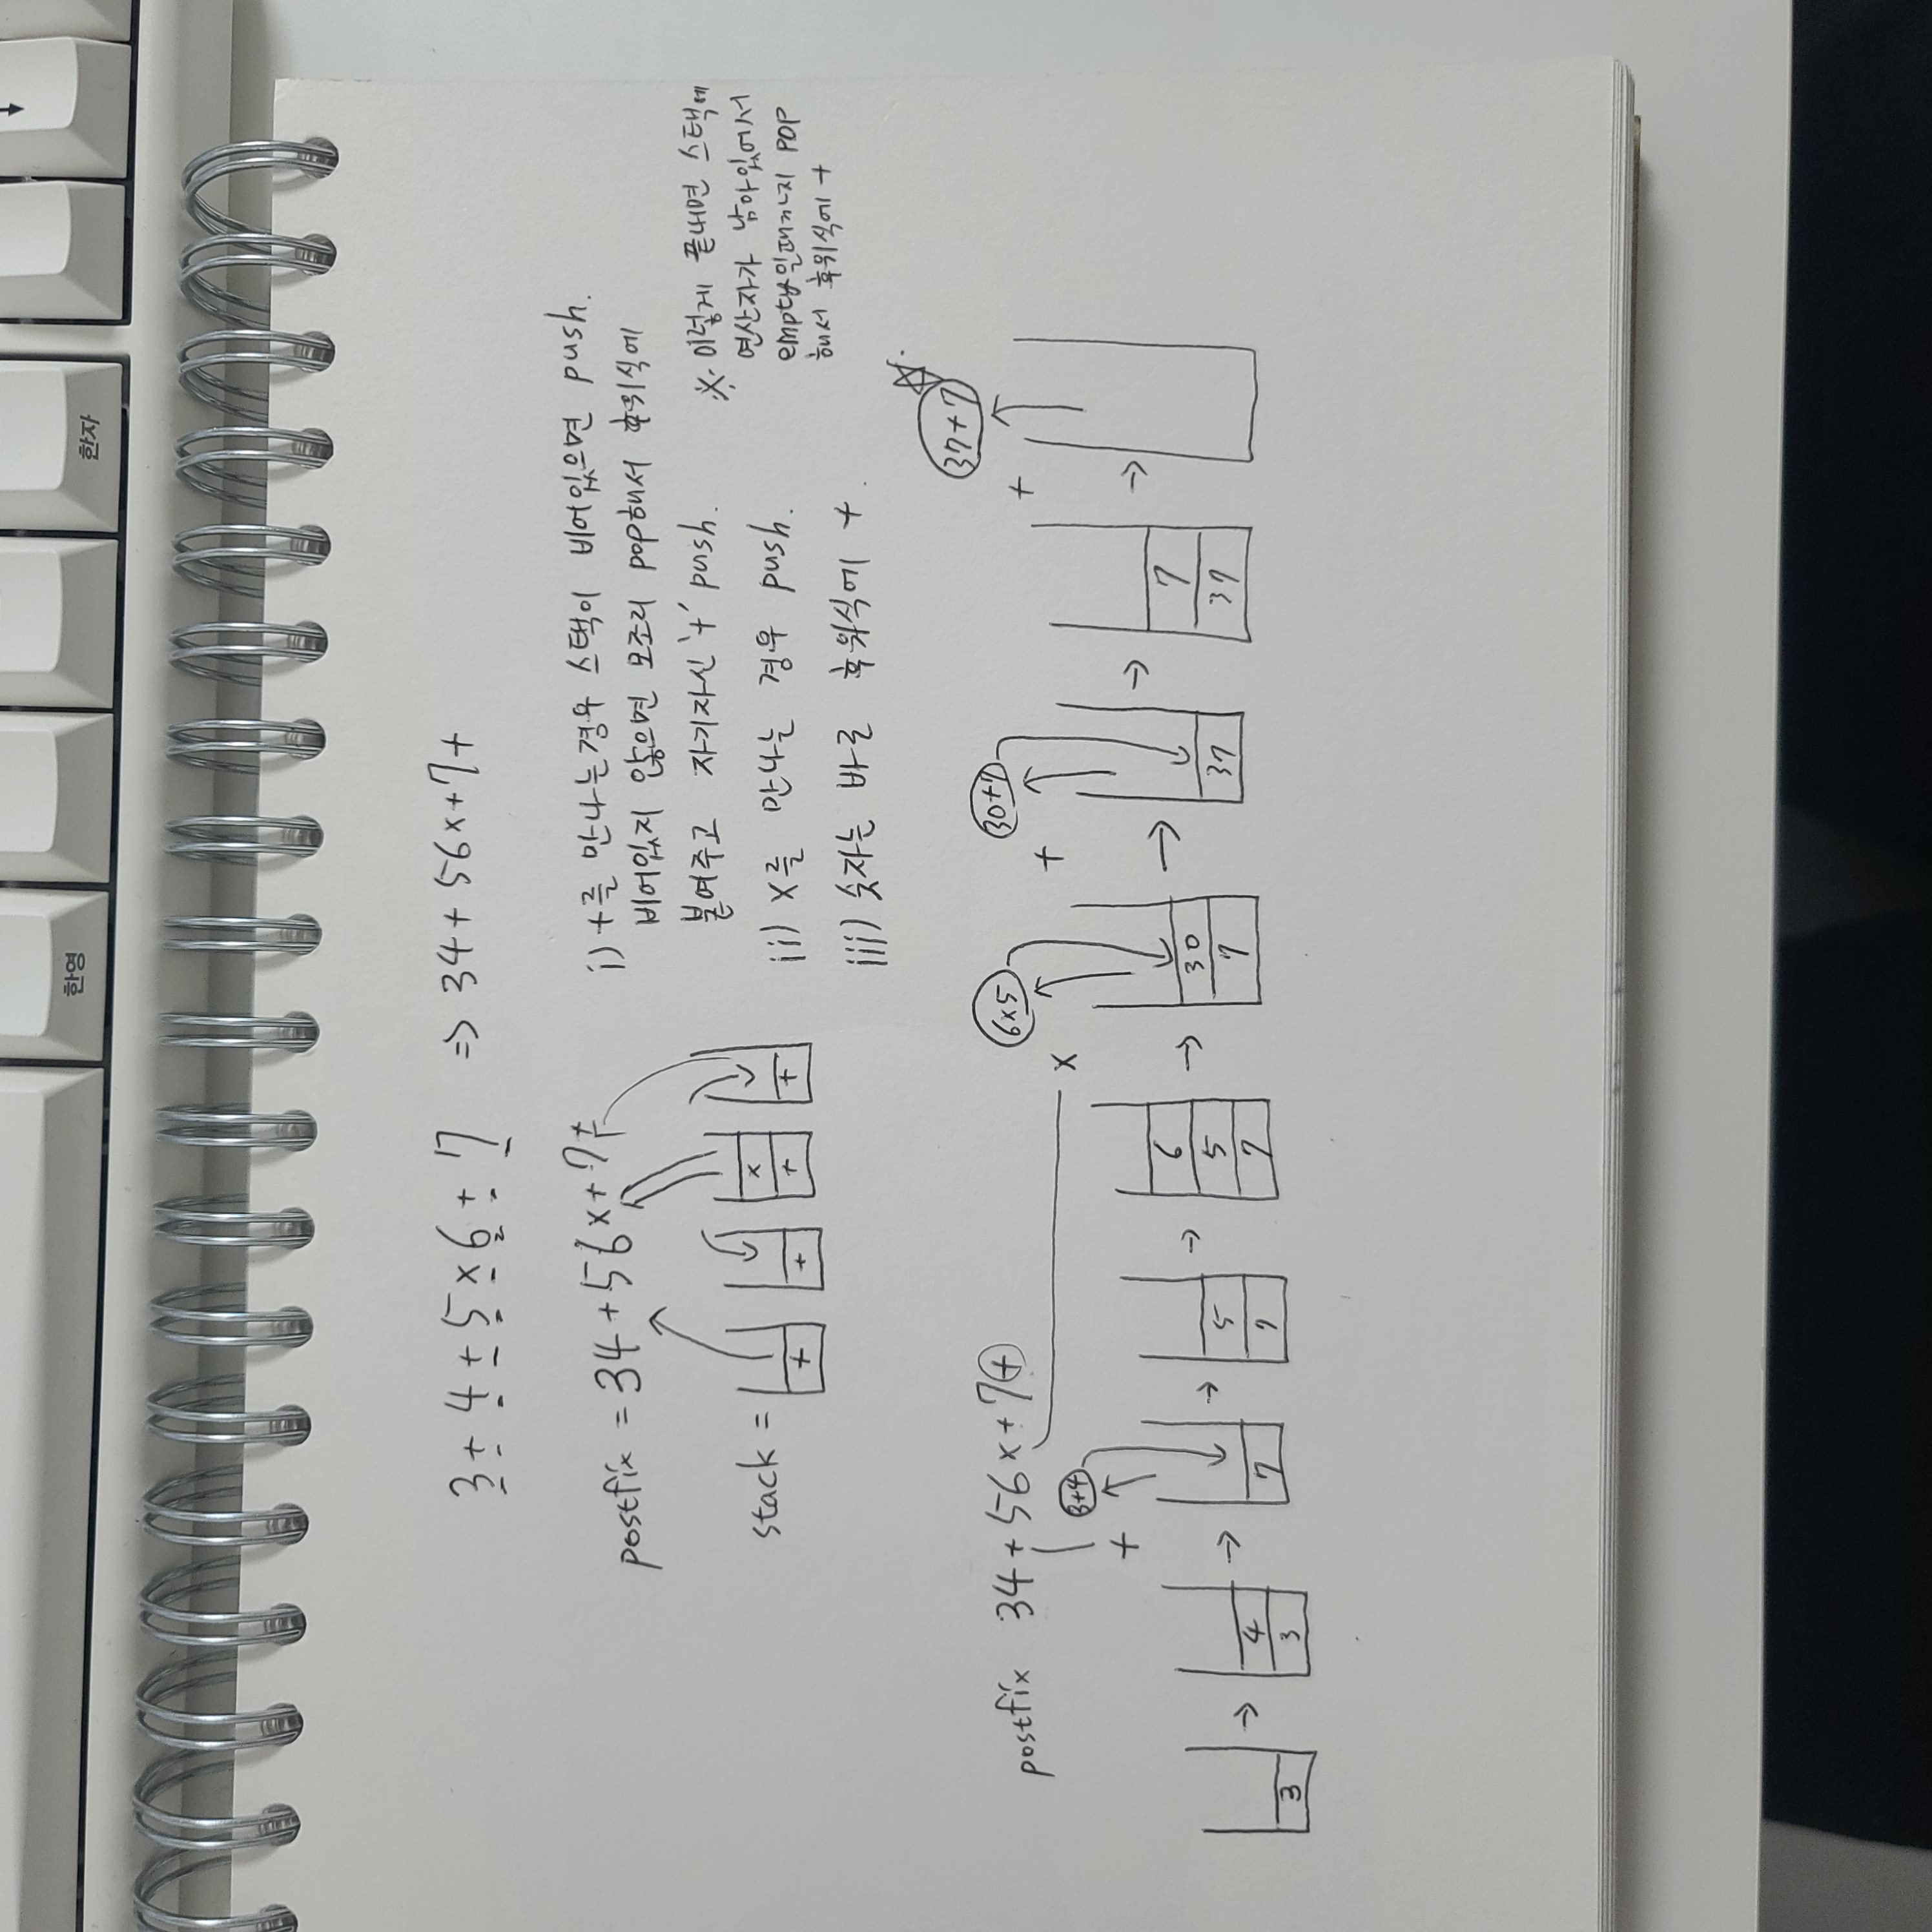 한영
한자
↓
3 + 4 + 5 × 6 + 7 => 34+56×+7+
postfix = 34+56×+7+
stack =
+
+
×
+
+
i) +를 만나는경우 스택이 비어있으면 push.
비어있지 않으면 모조리 pop해서 후위식에
붙여주고 자기자신 '+' push.
ii) ×를 만나는 경우 push.
iii) 숫자는 바로 후위식에 +.
※ 이렇게 끝내면 스택에
연산자가 남아있어서
empty일때까지 pop
해서 후위식에 +
postfix 34+56×+7+
+
3+4
×
6×5
+
30+7
+
37+7
3
→
4
3
→
7
→
5
7
→
6
5
7
→
30
7
→
37
→
7
37
→